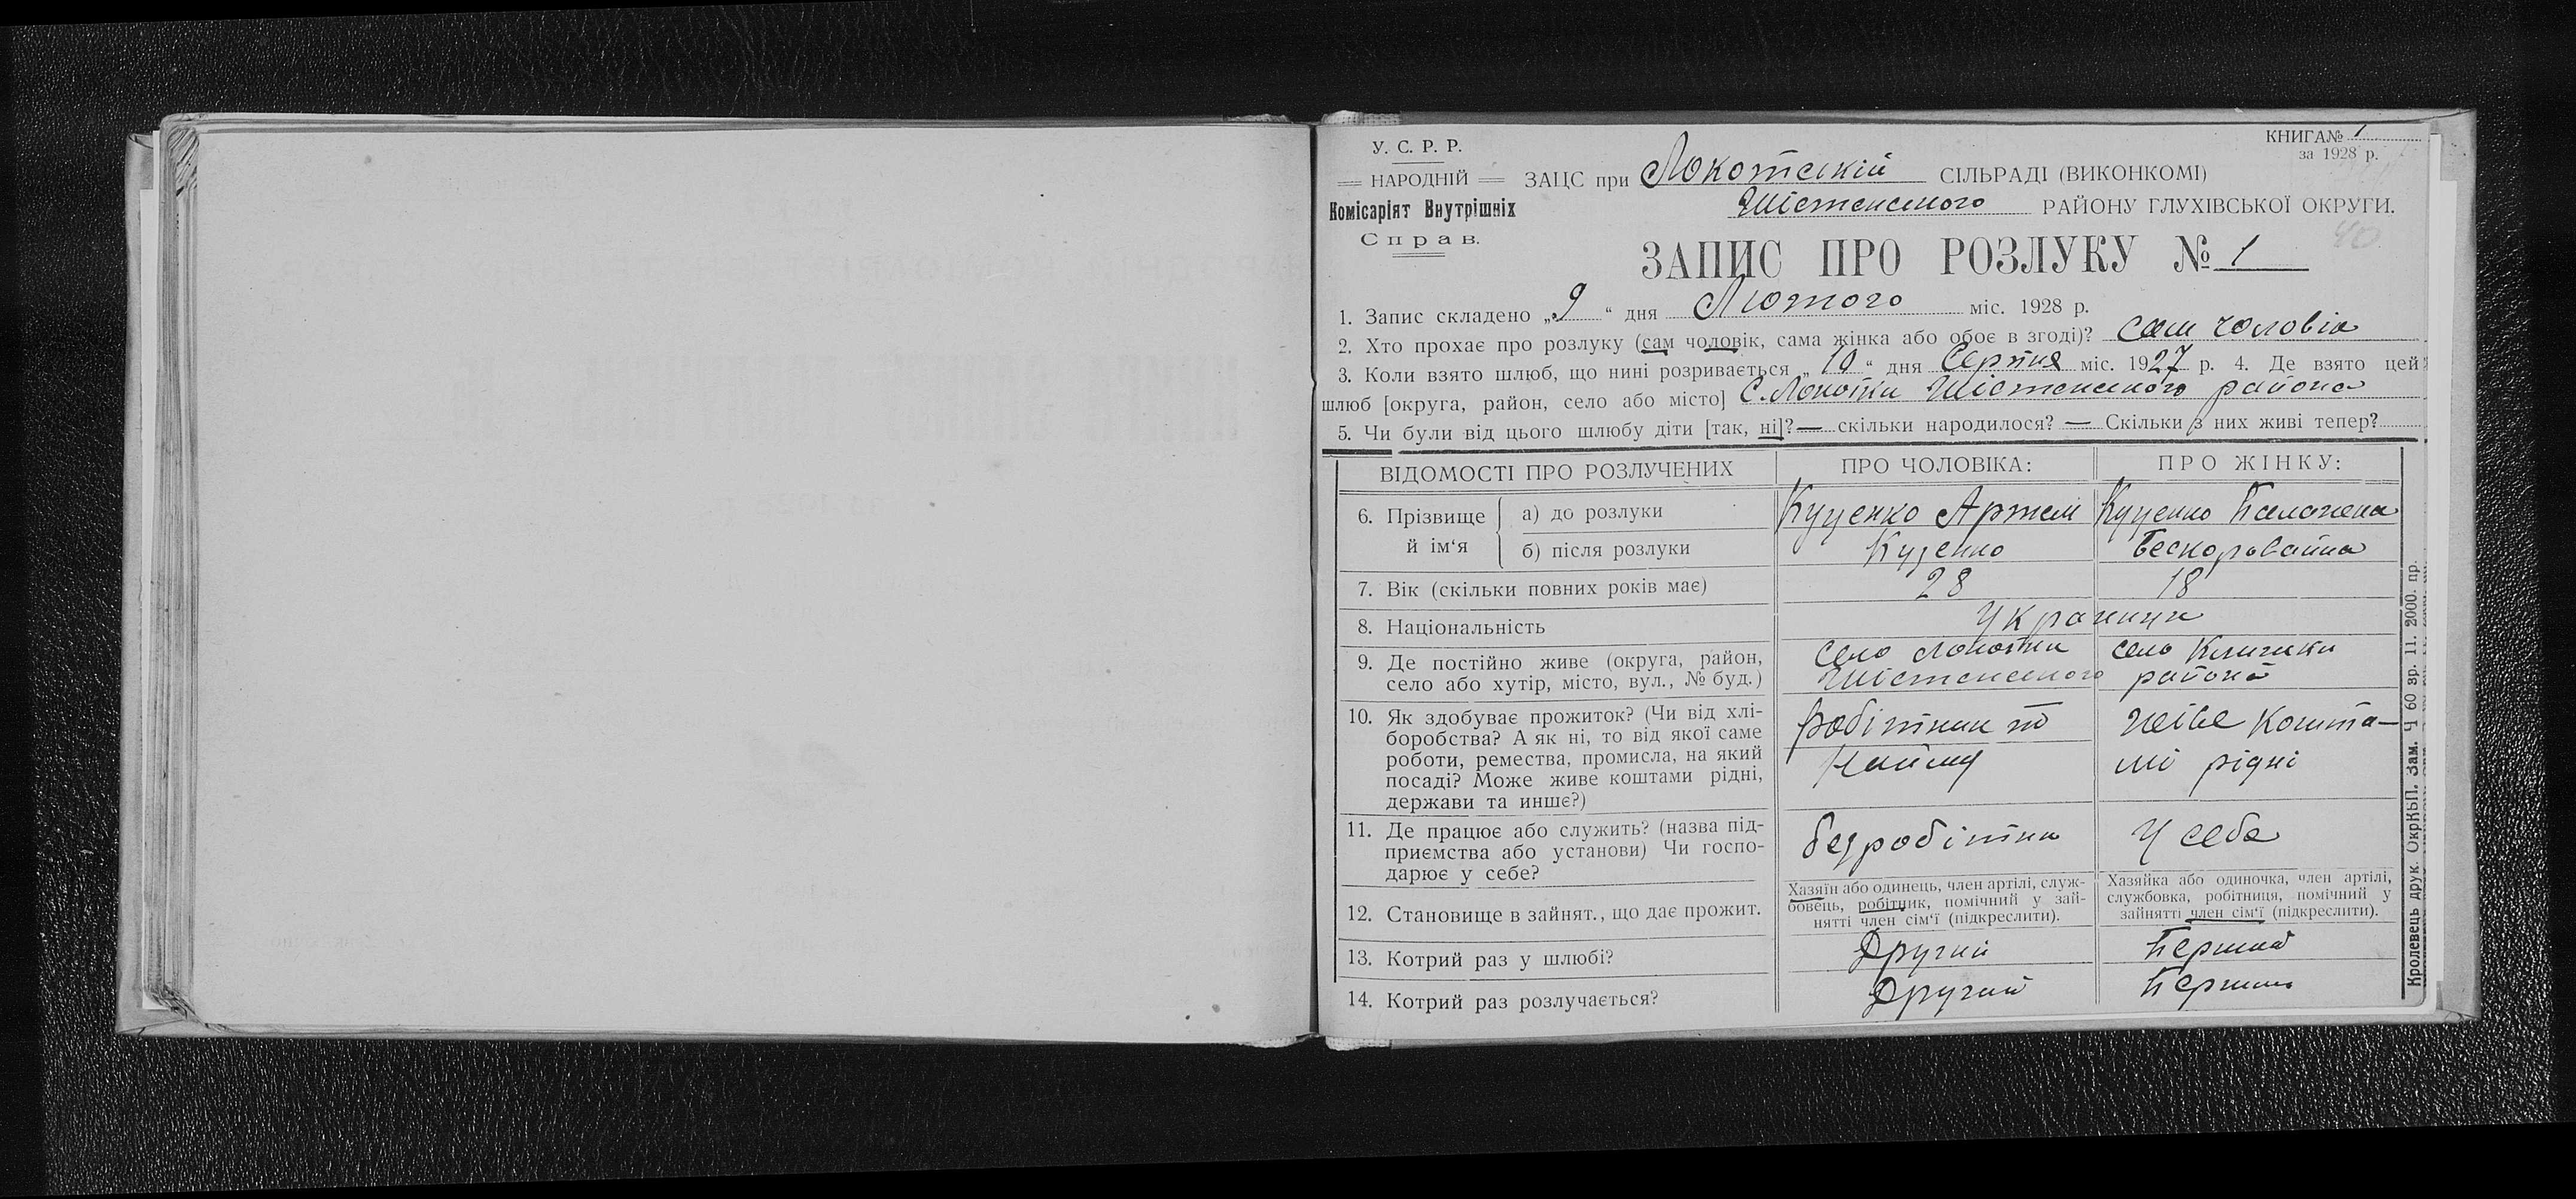 КНИГА № 1
за 1928 р.
У. С. Р. Р.
НАРОДНІЙ
Комісаріят Внутрішніх
Справ.
ЗАЦС при Локотській СІЛЬРАДІ (ВИКОНКОМІ)
Шістенського РАЙОНУ ГЛУХІВСЬКОЇ ОКРУГИ.
40
ЗАПИС ПРО РОЗЛУКУ № 1
1. Запис складено „9“ дня Лютого міс. 1928 р.
2. Хто прохає про розлуку (сам чоловік, сама жінка або обоє в згоді)? сам чоловік
3. Коли взято шлюб, що нині розривається „10“ дня Серпня міс. 1927 р. 4. Де взято цей
шлюб [округа, район, село або місто] С. Локотки Шістенського района
5. Чи були від цього шлюбу діти [так, ні]? — скільки народилося? — Скільки з них живі тепер?
ВІДОМОСТІ ПРО РОЗЛУЧЕНИХ ПРО ЧОЛОВІКА: ПРО ЖІНКУ:
6. Прізвище й ім‘я а) до розлуки Куценко Артем Куценко Палажка
б) після розлуки Куценко Бескоровайна
7. Вік (скільки повних років має) 28 18
8. Національність Украинци
9. Де постійно живе (округа, район, село Локотки село Клишки
село або хутір, місто, вул., № буд.) Шістенського района
10. Як здобуває прожиток? (Чи від хлі- робітник по живе кошта-
боробства? А як ні, то від якої саме
роботи, ремества, промисла, на який найму мі рідні
посаді? Може живе коштами рідні,
держави та инше?)
11. Де працює або служить? (назва під- безробітни У себе
приємства або установи) Чи госпо-
дарює у себе?
12. Становище в зайнят., що дає прожит.
Хазяїн або одинець, член артілі, служ-
бовець, робітник, помічний у зай-
нятті член сім‘ї (підкреслити).
Хазяйка або одиночка, член артілі,
службовка, робітниця, помічний у
зайнятті член сім‘ї (підкреслити).
13. Котрий раз у шлюбі? Другий Перший
14. Котрий раз розлучається? Другий Перший
Кролевець друк. ОкрКВП. Зам. Ч 60 зр. 11. 2000. пр.